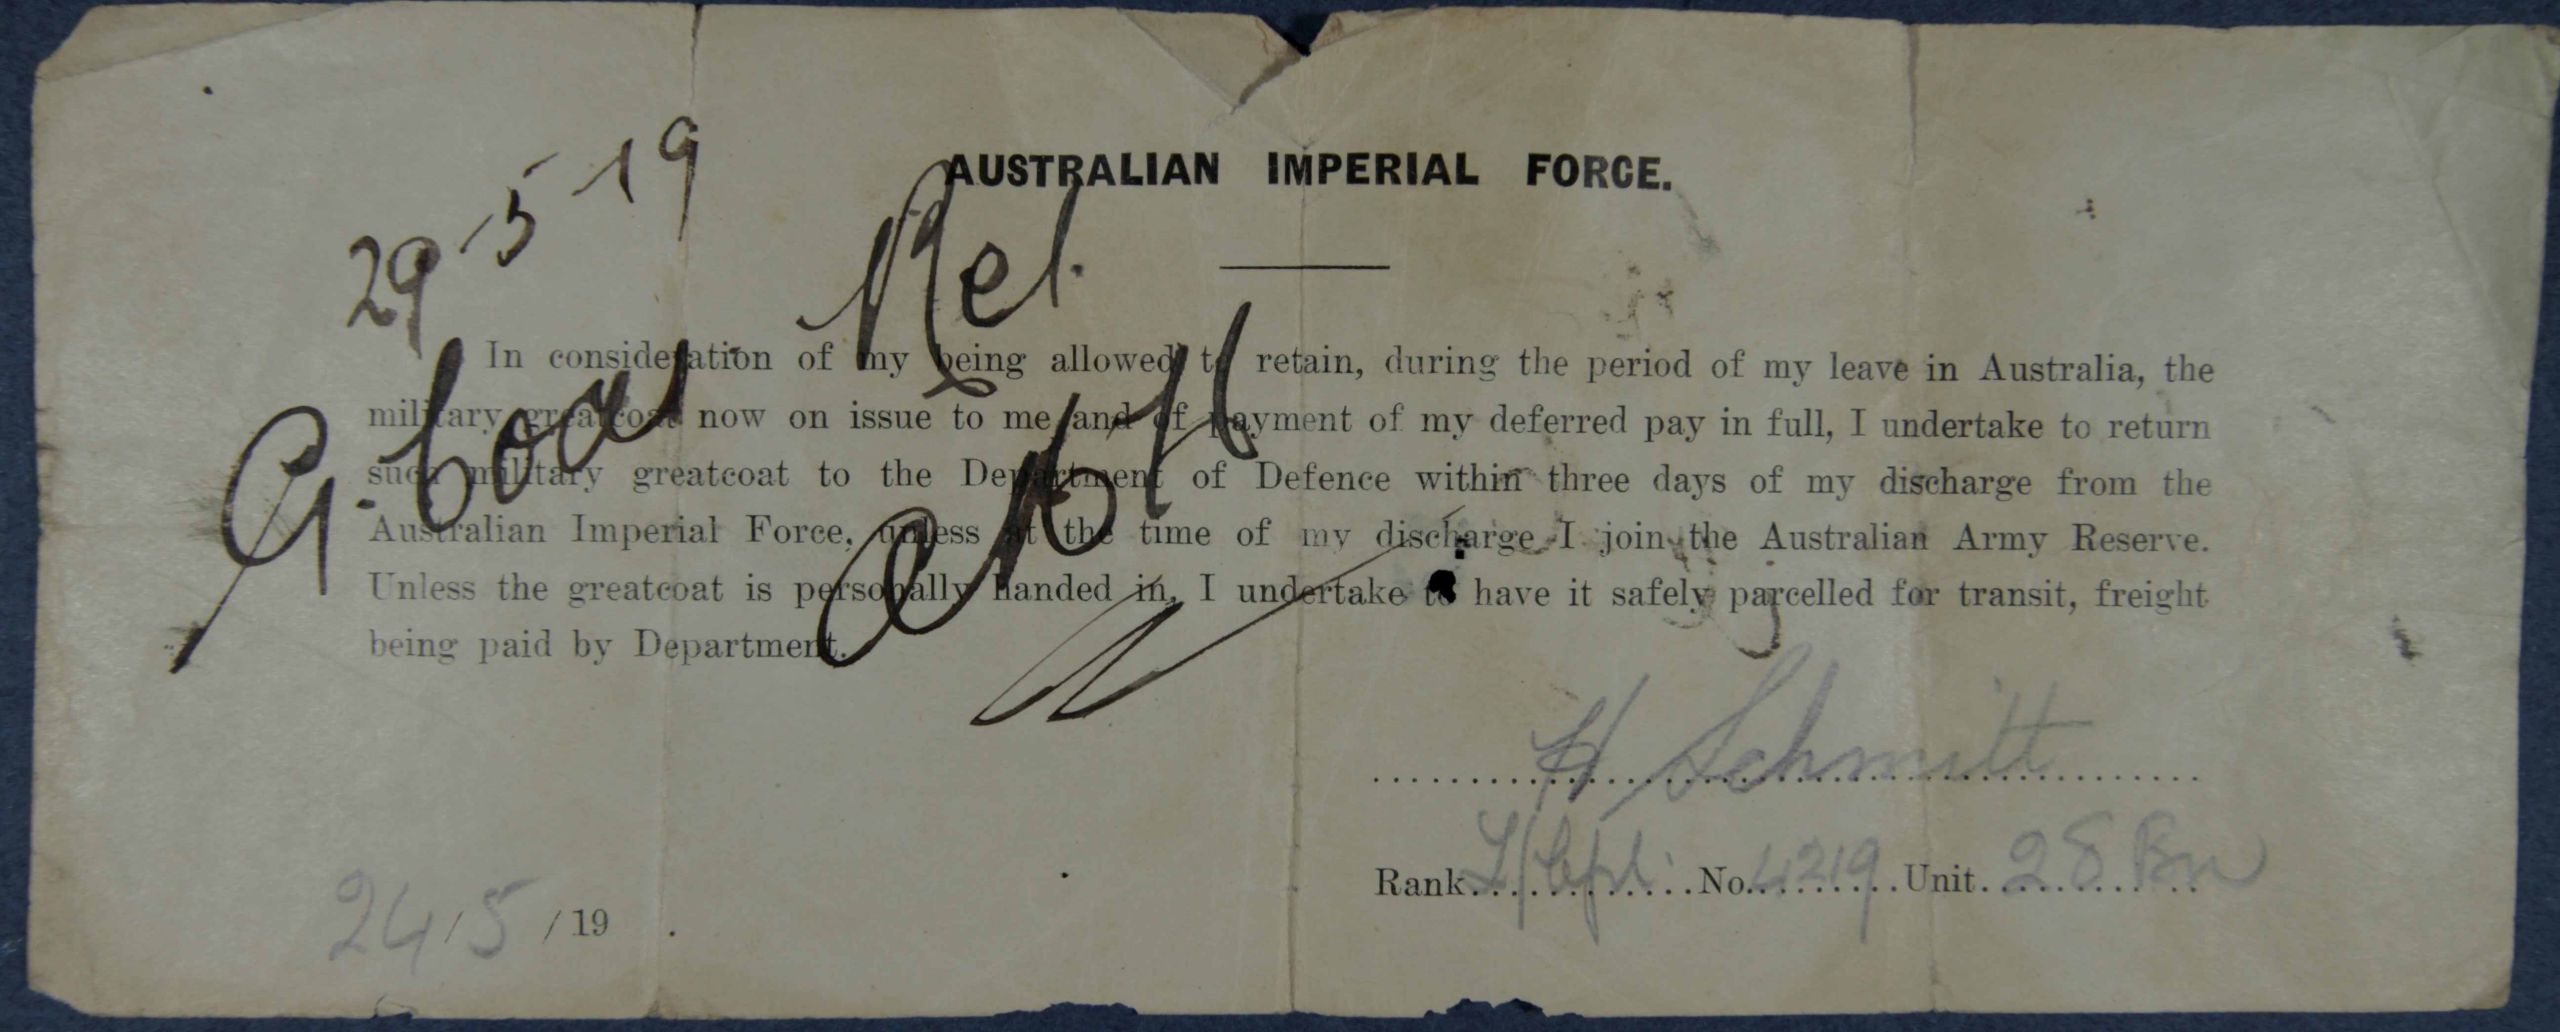 AUSTRALIAN IMPERIAL FORCE.
29-5-19
G. Coat Ret.
In consideration of my being allowed to retain, during the period of my leave in Australia, the
military greatcoat now on issue to me, and of payment of my deferred pay in full, I undertake to return
such military greatcoat to the Department of Defence within three days of my discharge from the
Australian Imperial Force, unless at the time of my discharge I join the Australian Army Reserve.
Unless the greatcoat is personally handed in, I undertake to have it safely parcelled for transit, freight
being paid by Department.
H Schmitt
Rank L/Cpl. No. 4219 Unit. 28 Bn
24/5/19